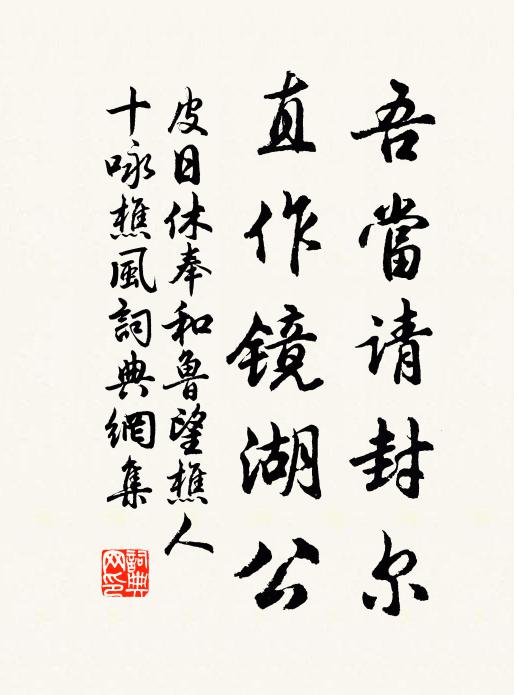 吾當请封尔
直作镜湖公
皮日休奉和魯望樵人
十咏樵風詞典網集
詞典
网印